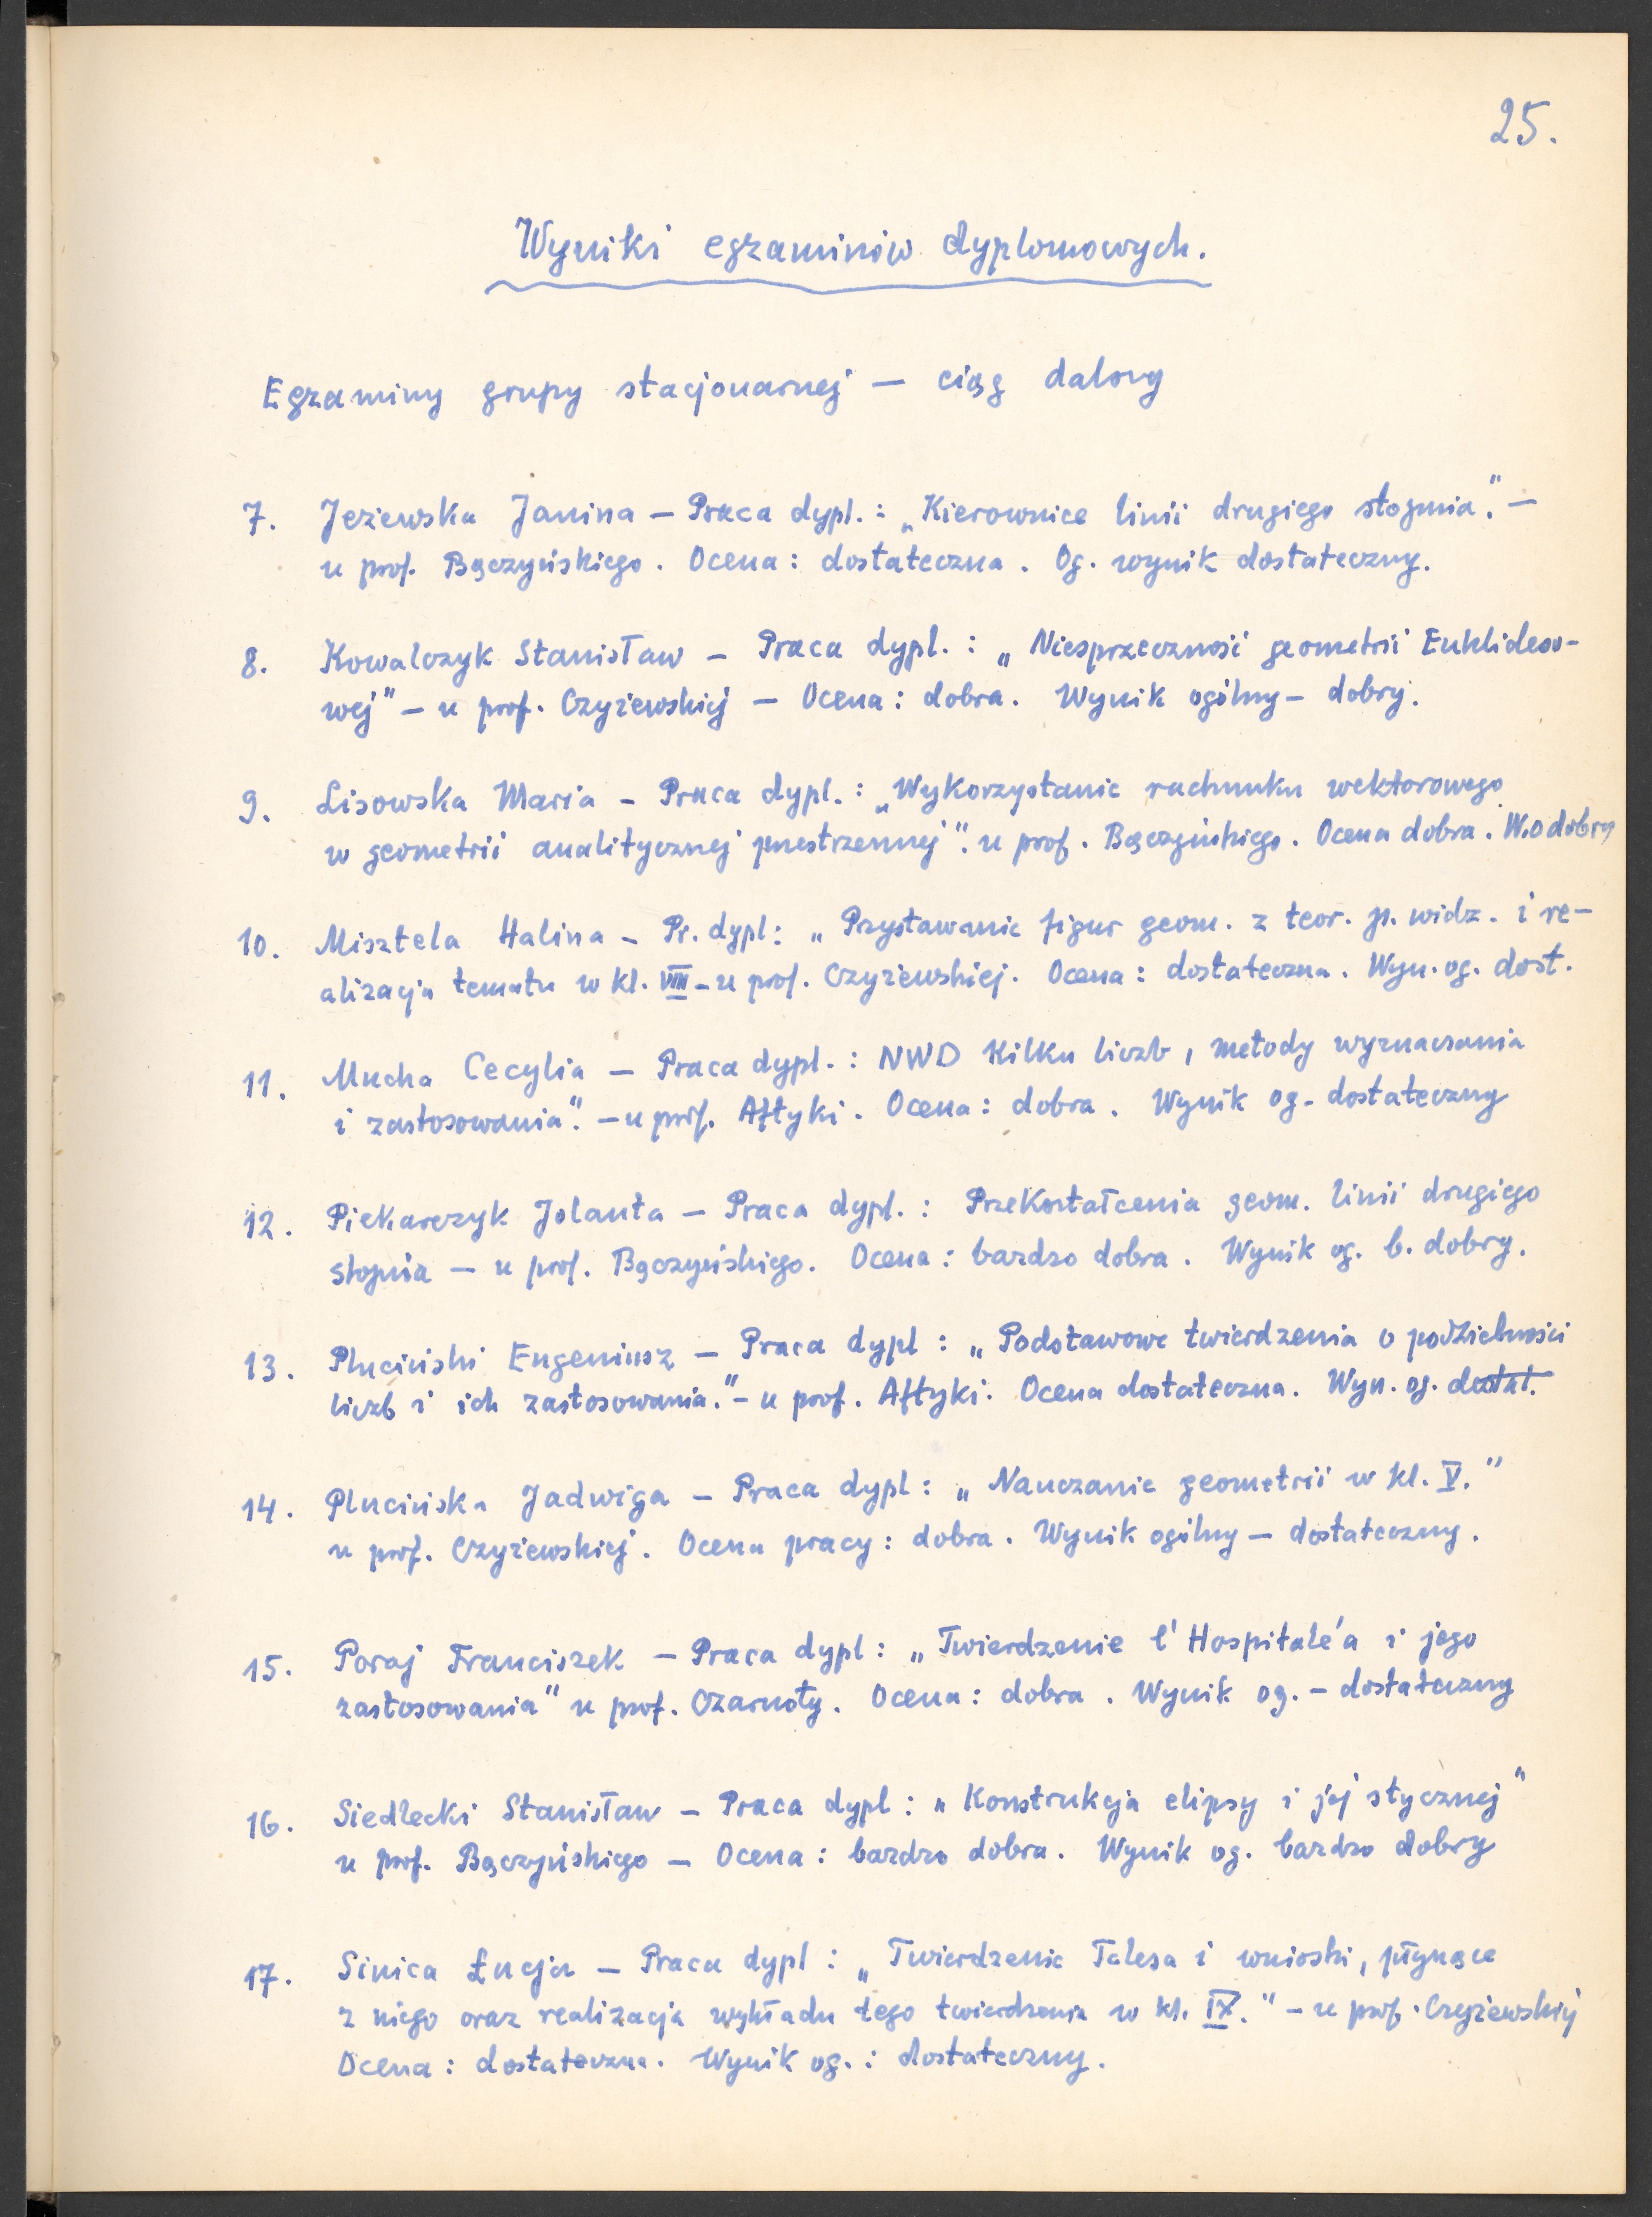 25.
Wyniki egzaminów dyplomowych.
Egzaminy grupy stacjonarnej — ciąg dalszy
7. Jeżewska Janina — Praca dypl.: „Kierownice linii drugiego stopnia". —
u prof. Bączyńskiego. Ocena: dostateczna. Og. wynik dostateczny.
8. Kowalczyk Stanisław — Praca dypl.: „Niesprzeczność geometrii Euklideso-
wej" — u prof. Czyżewskiej — Ocena: dobra. Wynik ogólny — dobry.
9. Lisowska Maria — Praca dypl.: „Wykorzystanie rachunku wektorowego
w geometrii analitycznej przestrzennej". u prof. Bączyńskiego. Ocena dobra. W.o dobry
10. Misztela Halina — Pr. dypl: „Przystawanie figur geom. z teor. p. widz. i re-
alizacja tematu w kl. VIII — u prof. Czyżewskiej. Ocena: dostateczna. Wyn. og. dost.
11. Mucha Cecylia — Praca dypl.: NWD kilku liczb, metody wyznaczania
i zastosowania". — u prof. Aftyki. Ocena: dobra. Wynik og. dostateczny
12. Piekarczyk Jolanta — Praca dypl.: Przekształcenia geom. linii drugiego
stopnia — u prof. Bączyńskiego. Ocena: bardzo dobra. Wynik og. b. dobry.
13. Pluciński Eugeniusz — Praca dypl: „Podstawowe twierdzenia o podzielności
liczb i ich zastosowania." — u prof. Aftyki. Ocena dostateczna. Wyn. og. dostat.
14. Plucińska Jadwiga — Praca dypl: „Nauczanie geometrii w kl. V."
u prof. Czyżewskiej. Ocena pracy: dobra. Wynik ogólny — dostateczny.
15. Poraj Franciszek — Praca dypl: „Twierdzenie l'Hospitale'a i jego
zastosowania" u prof. Czarnoty. Ocena: dobra. Wynik og. — dostateczny
16. Siedlecki Stanisław — Praca dypl: „Konstrukcja elipsy i jej stycznej"
u prof. Bączyńskiego — Ocena: bardzo dobra. Wynik og. bardzo dobry
17. Sinica Łucja — Praca dypl: „Twierdzenie Talesa i wnioski, płynące
z niego oraz realizacja wykładu tego twierdzenia w kl. IX." — u prof. Czyżewskiej
Ocena: dostateczna. Wynik og.: dostateczny.